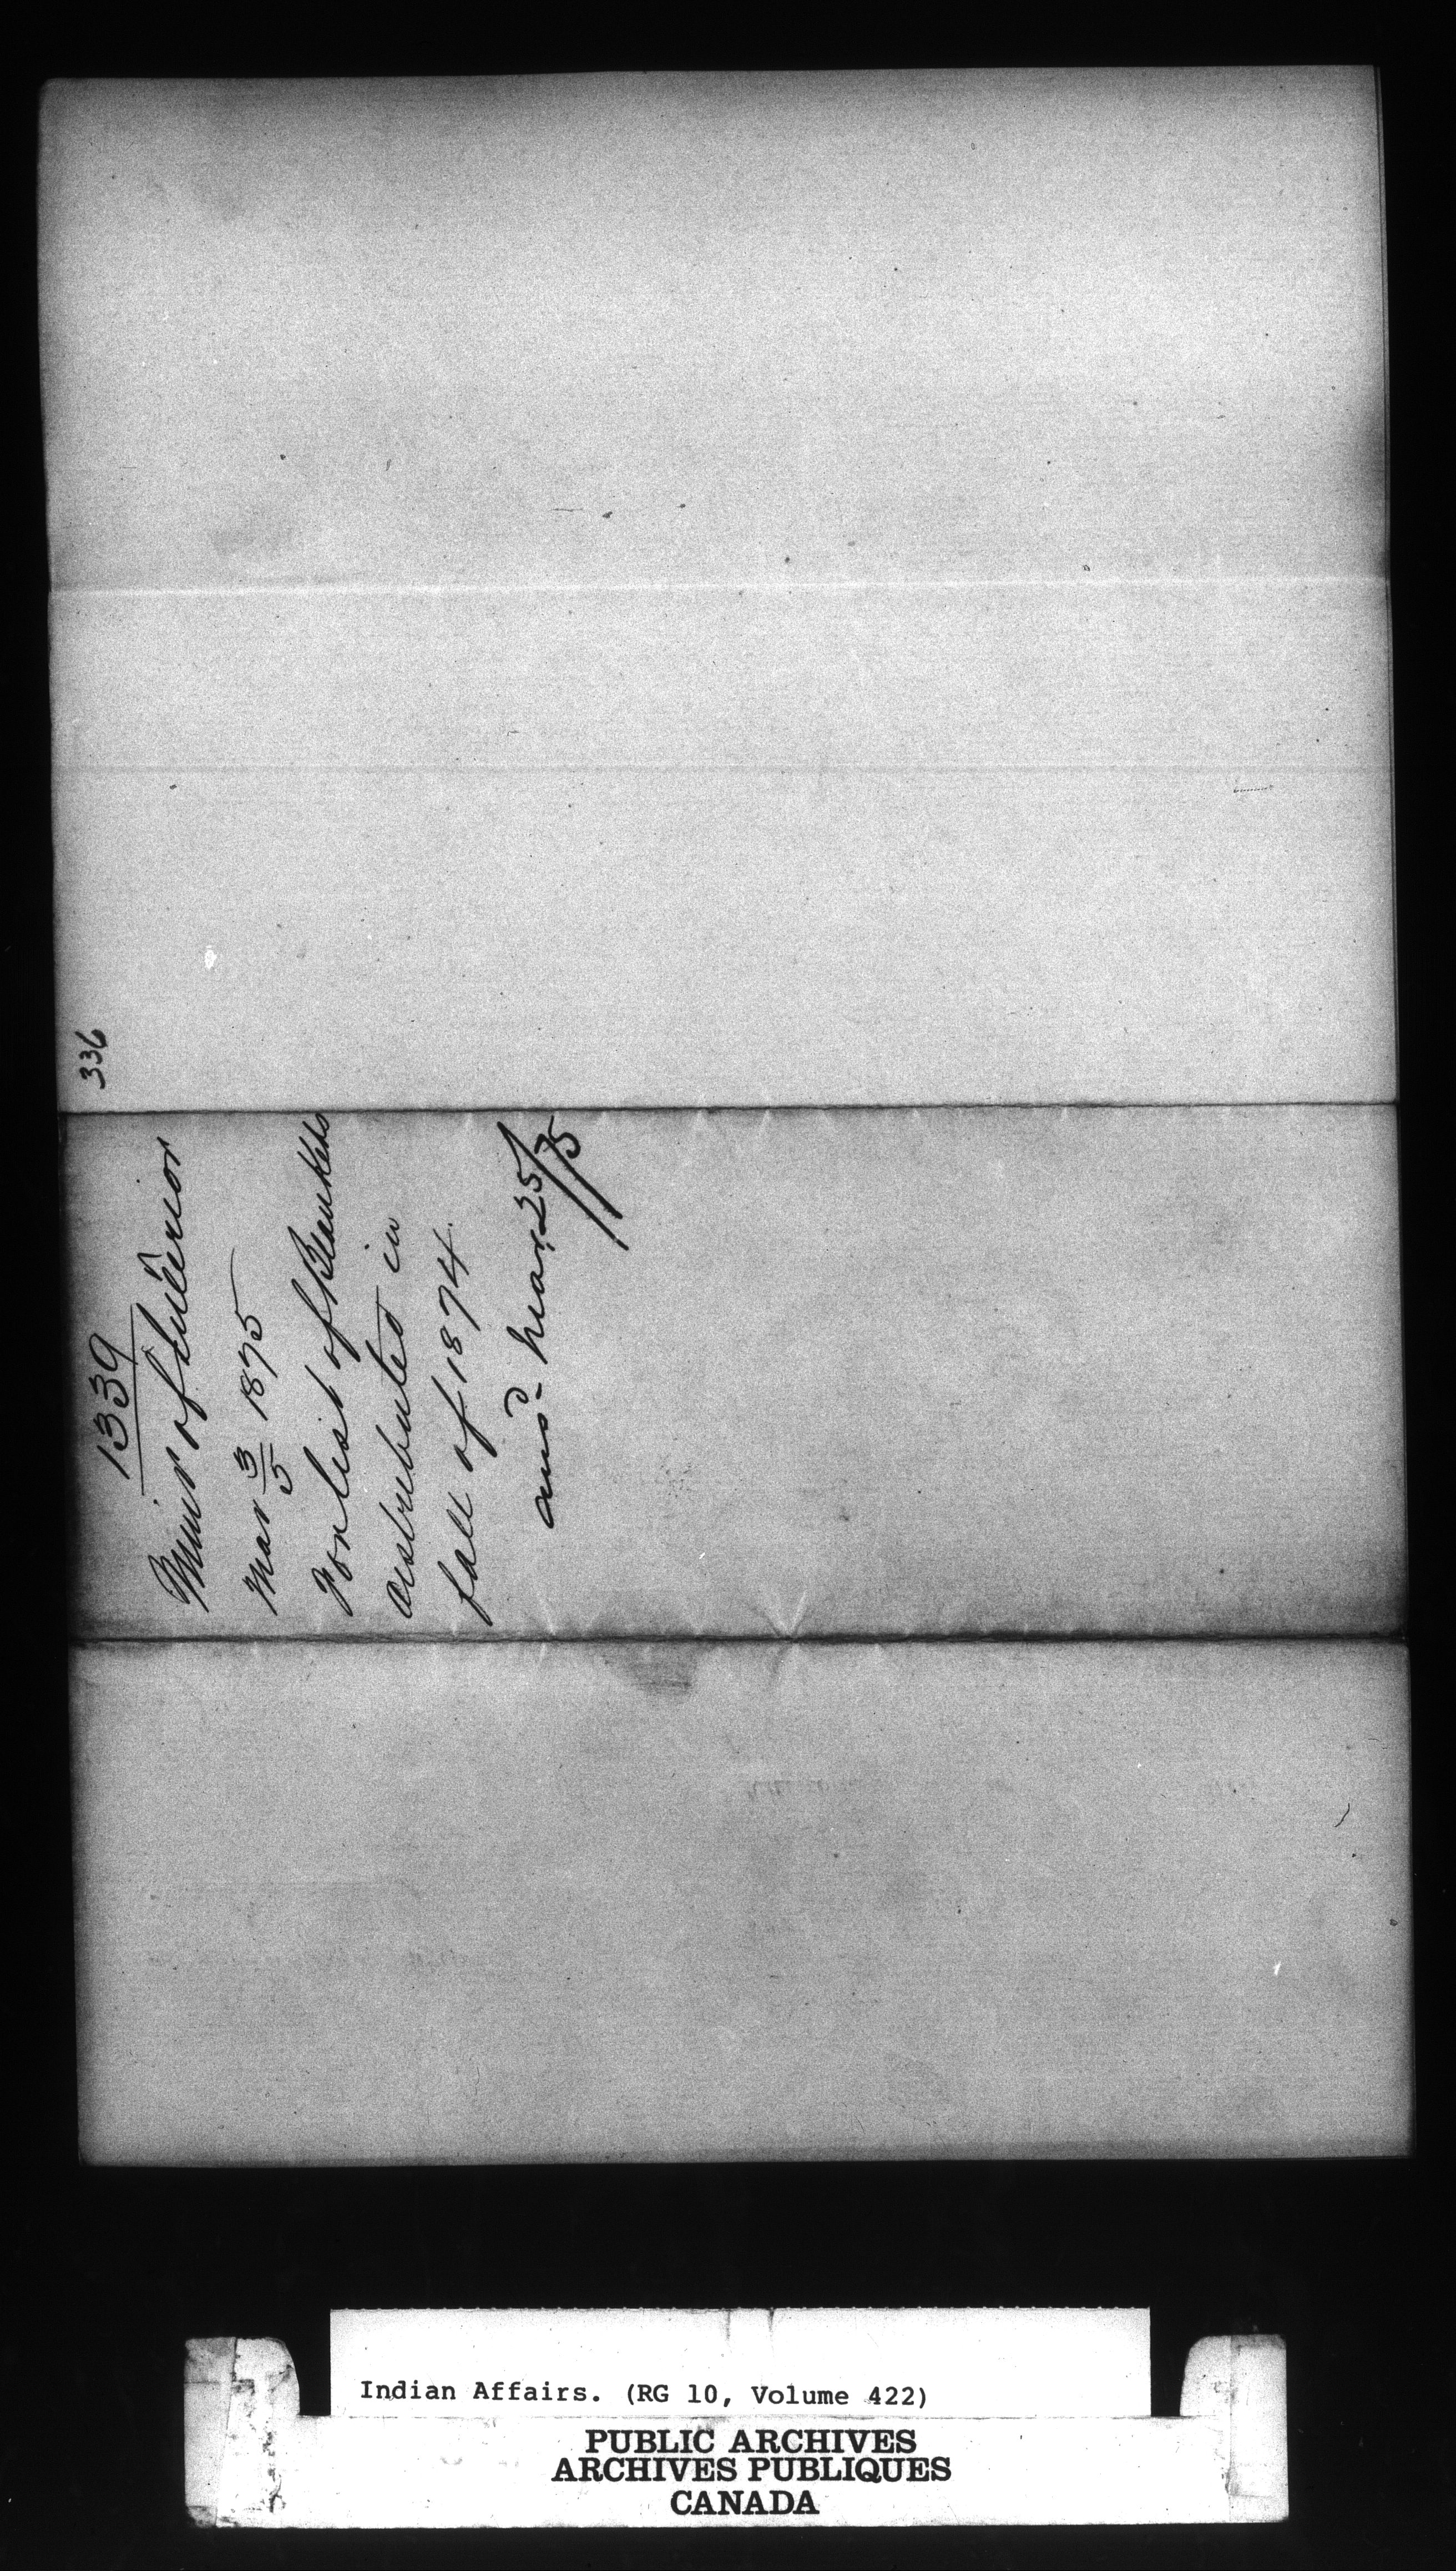 336
1339
Minr of Interior
Mar 3/5 1875
For list of Blankets
distributed in
fall of 1874.
ansd Mar 25/75
Indian Affairs. (RG 10, Volume 422)
PUBLIC ARCHIVES
ARCHIVES PUBLIQUES
CANADA